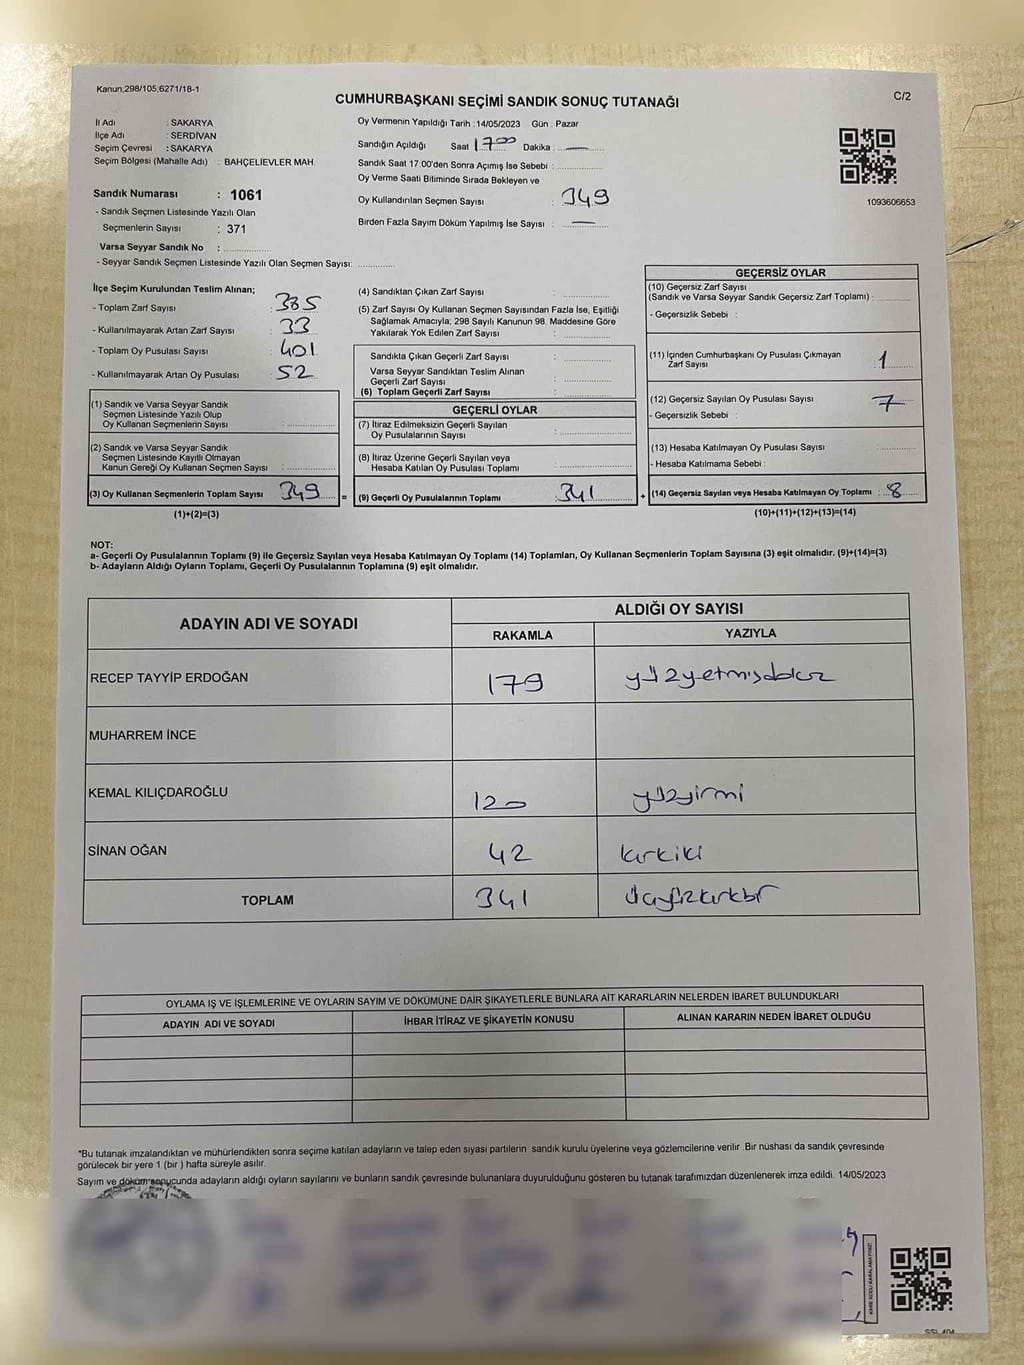 Kanun;298/105,6271/18-1
C/2
CUMHURBAŞKANI SEÇİMİ SANDIK SONUÇ TUTANAĞI
İl Adı : SAKARYA
İlçe Adı : SERDİVAN
Seçim Çevresi : SAKARYA
Seçim Bölgesi (Mahalle Adı) : BAHÇELİEVLER MAH.
Sandık Numarası : 1061
- Sandık Seçmen Listesinde Yazılı Olan
Seçmenlerin Sayısı : 371
Varsa Seyyar Sandık No :
- Seyyar Sandık Seçmen Listesinde Yazılı Olan Seçmen Sayısı:
Oy Vermenin Yapıldığı Tarih : 14/05/2023 Gün : Pazar
Sandığın Açıldığı Saat 17 00 Dakika : —
Sandık Saat 17.00'den Sonra Açımış İse Sebebi :
Oy Verme Saati Bitiminde Sırada Bekleyen ve
Oy Kullandırılan Seçmen Sayısı : 349
Birden Fazla Sayım Döküm Yapılmış İse Sayısı : —
1093606653
İlçe Seçim Kurulundan Teslim Alınan;
- Toplam Zarf Sayısı : 385
- Kullanılmayarak Artan Zarf Sayısı : 33
- Toplam Oy Pusulası Sayısı : 401
- Kullanılmayarak Artan Oy Pusulası : 52
(1) Sandık ve Varsa Seyyar Sandık
Seçmen Listesinde Yazılı Olup
Oy Kullanan Seçmenlerin Sayısı :
(2) Sandık ve Varsa Seyyar Sandık
Seçmen Listesinde Kayıtlı Olmayan
Kanun Gereği Oy Kullanan Seçmen Sayısı :
(3) Oy Kullanan Seçmenlerin Toplam Sayısı : 349 =
(1)+(2)=(3)
(4) Sandıktan Çıkan Zarf Sayısı :
(5) Zarf Sayısı Oy Kullanan Seçmen Sayısından Fazla İse, Eşitliği
Sağlamak Amacıyla; 298 Sayılı Kanunun 98. Maddesine Göre
Yakılarak Yok Edilen Zarf Sayısı :
Sandıkta Çıkan Geçerli Zarf Sayısı :
Varsa Seyyar Sandıktan Teslim Alınan
Geçerli Zarf Sayısı :
(6) Toplam Geçerli Zarf Sayısı :
GEÇERLİ OYLAR
(7) İtiraz Edilmeksizin Geçerli Sayılan
Oy Pusulalarının Sayısı :
(8) İtiraz Üzerine Geçerli Sayılan veya
Hesaba Katılan Oy Pusulası Toplamı :
(9) Geçerli Oy Pusulalarının Toplamı : 341 +
GEÇERSİZ OYLAR
(10) Geçersiz Zarf Sayısı
(Sandık ve Varsa Seyyar Sandık Geçersiz Zarf Toplamı) :
- Geçersizlik Sebebi :
(11) İçinden Cumhurbaşkanı Oy Pusulası Çıkmayan
Zarf Sayısı : 1
(12) Geçersiz Sayılan Oy Pusulası Sayısı : 7
- Geçersizlik Sebebi :
(13) Hesaba Katılmayan Oy Pusulası Sayısı :
- Hesaba Katılmama Sebebi :
(14) Geçersiz Sayılan veya Hesaba Katılmayan Oy Toplamı : 8
(10)+(11)+(12)+(13)=(14)
NOT:
a- Geçerli Oy Pusulalarının Toplamı (9) ile Geçersiz Sayılan veya Hesaba Katılmayan Oy Toplamı (14) Toplamları, Oy Kullanan Seçmenlerin Toplam Sayısına (3) eşit olmalıdır. (9)+(14)=(3)
b- Adayların Aldığı Oyların Toplamı, Geçerli Oy Pusulalarının Toplamına (9) eşit olmalıdır.
ADAYIN ADI VE SOYADI
ALDIĞI OY SAYISI
RAKAMLA YAZIYLA
RECEP TAYYİP ERDOĞAN 179 yüzyetmişdokuz
MUHARREM İNCE
KEMAL KILIÇDAROĞLU 120 yüzyirmi
SİNAN OĞAN 42 kırkiki
TOPLAM 341 üçyüzkırkbir
OYLAMA İŞ VE İŞLEMLERİNE VE OYLARIN SAYIM VE DÖKÜMÜNE DAİR ŞİKAYETLERLE BUNLARA AİT KARARLARIN NELERDEN İBARET BULUNDUKLARI
ADAYIN ADI VE SOYADI İHBAR İTİRAZ VE ŞİKAYETİN KONUSU ALINAN KARARIN NEDEN İBARET OLDUĞU
*Bu tutanak imzalandıktan ve mühürlendikten sonra seçime katılan adayların ve talep eden siyasi partilerin sandık kurulu üyelerine veya gözlemcilerine verilir. Bir nüshası da sandık çevresinde
görülecek bir yere 1 (bir ) hafta süreyle asılır.
Sayım ve döküm sonucunda adayların aldığı oyların sayılarını ve bunların sandık çevresinde bulunanlara duyurulduğunu gösteren bu tutanak tarafımızdan düzenlenerek imza edildi. 14/05/2023